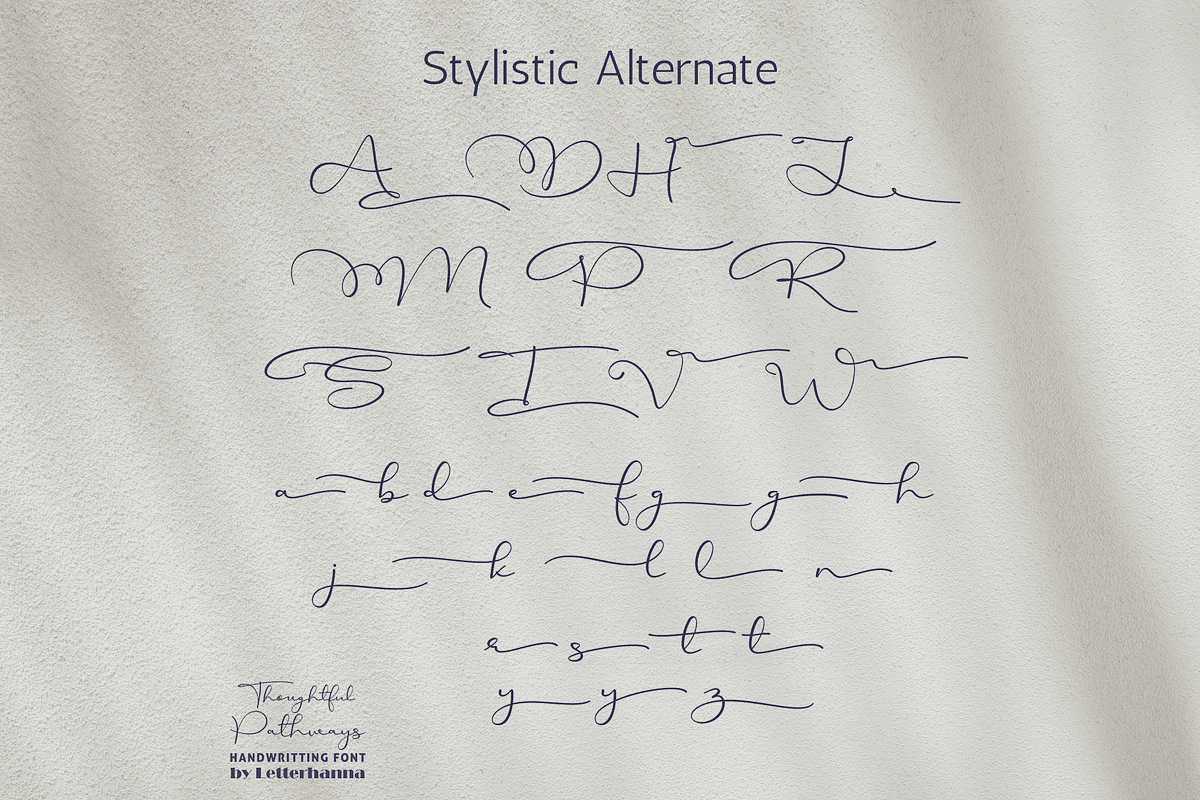 Stylistic Alternate
A D H L
M N P R
S T V W
a b d e f g g h
j k l l n
r s t t
y y z
Thoughtful
Pathways
HANDWRITTING FONT
by Letterhanna